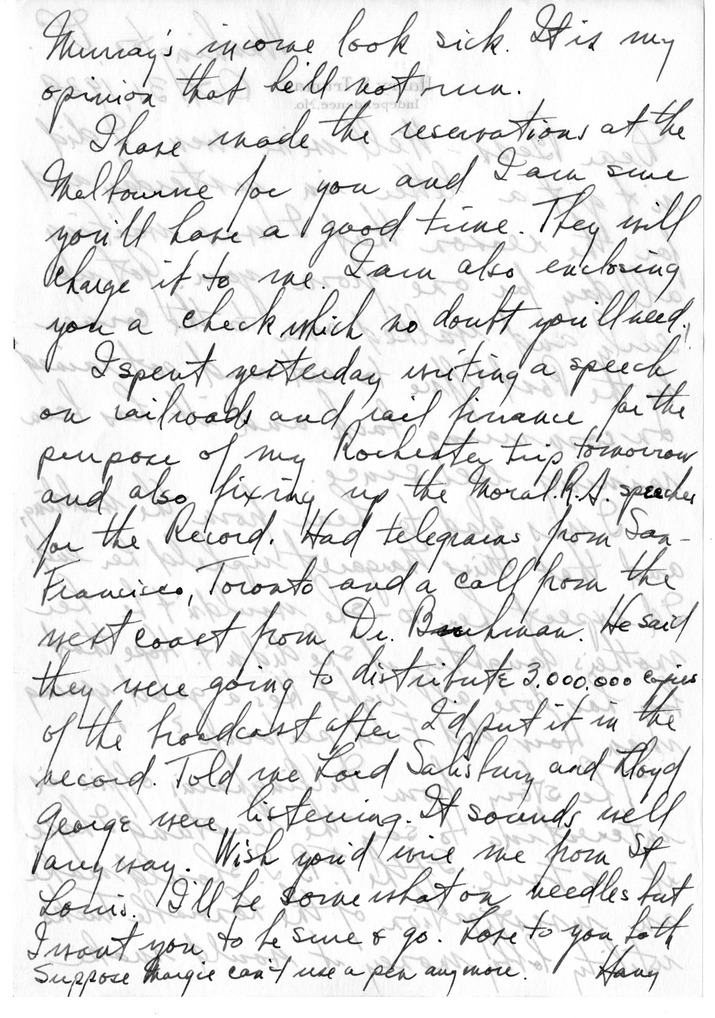 Murray's income look sick. It is my
opinion that he'll not run.
I have made the reservations at the
Melbourne for you and I am sure
you'll have a good time. They will
charge it to me. I am also enclosing
you a check which no doubt you'll need.
I spent yesterday writing a speech
on railroads and rail finance for the
purpose of my Rochester trip tomorrow
and also fixing up the Moral.R.A. speeches
for the Record. Had telegrams from San-
Francisco, Toronto and a call from the
west coast from Dr. Buchman. He said
they were going to distribute 3.000.000 copies
of the broadcast after I'd put it in the
record. Told me Lord Salisbury and Lloyd
George were listening. It sounds well
anyway. Wish you'd wire me from St
Louis. I'll be somewhat on needles but
I want you to be sure & go. Love to you both
Suppose Margie can't use a pen anymore. Harry